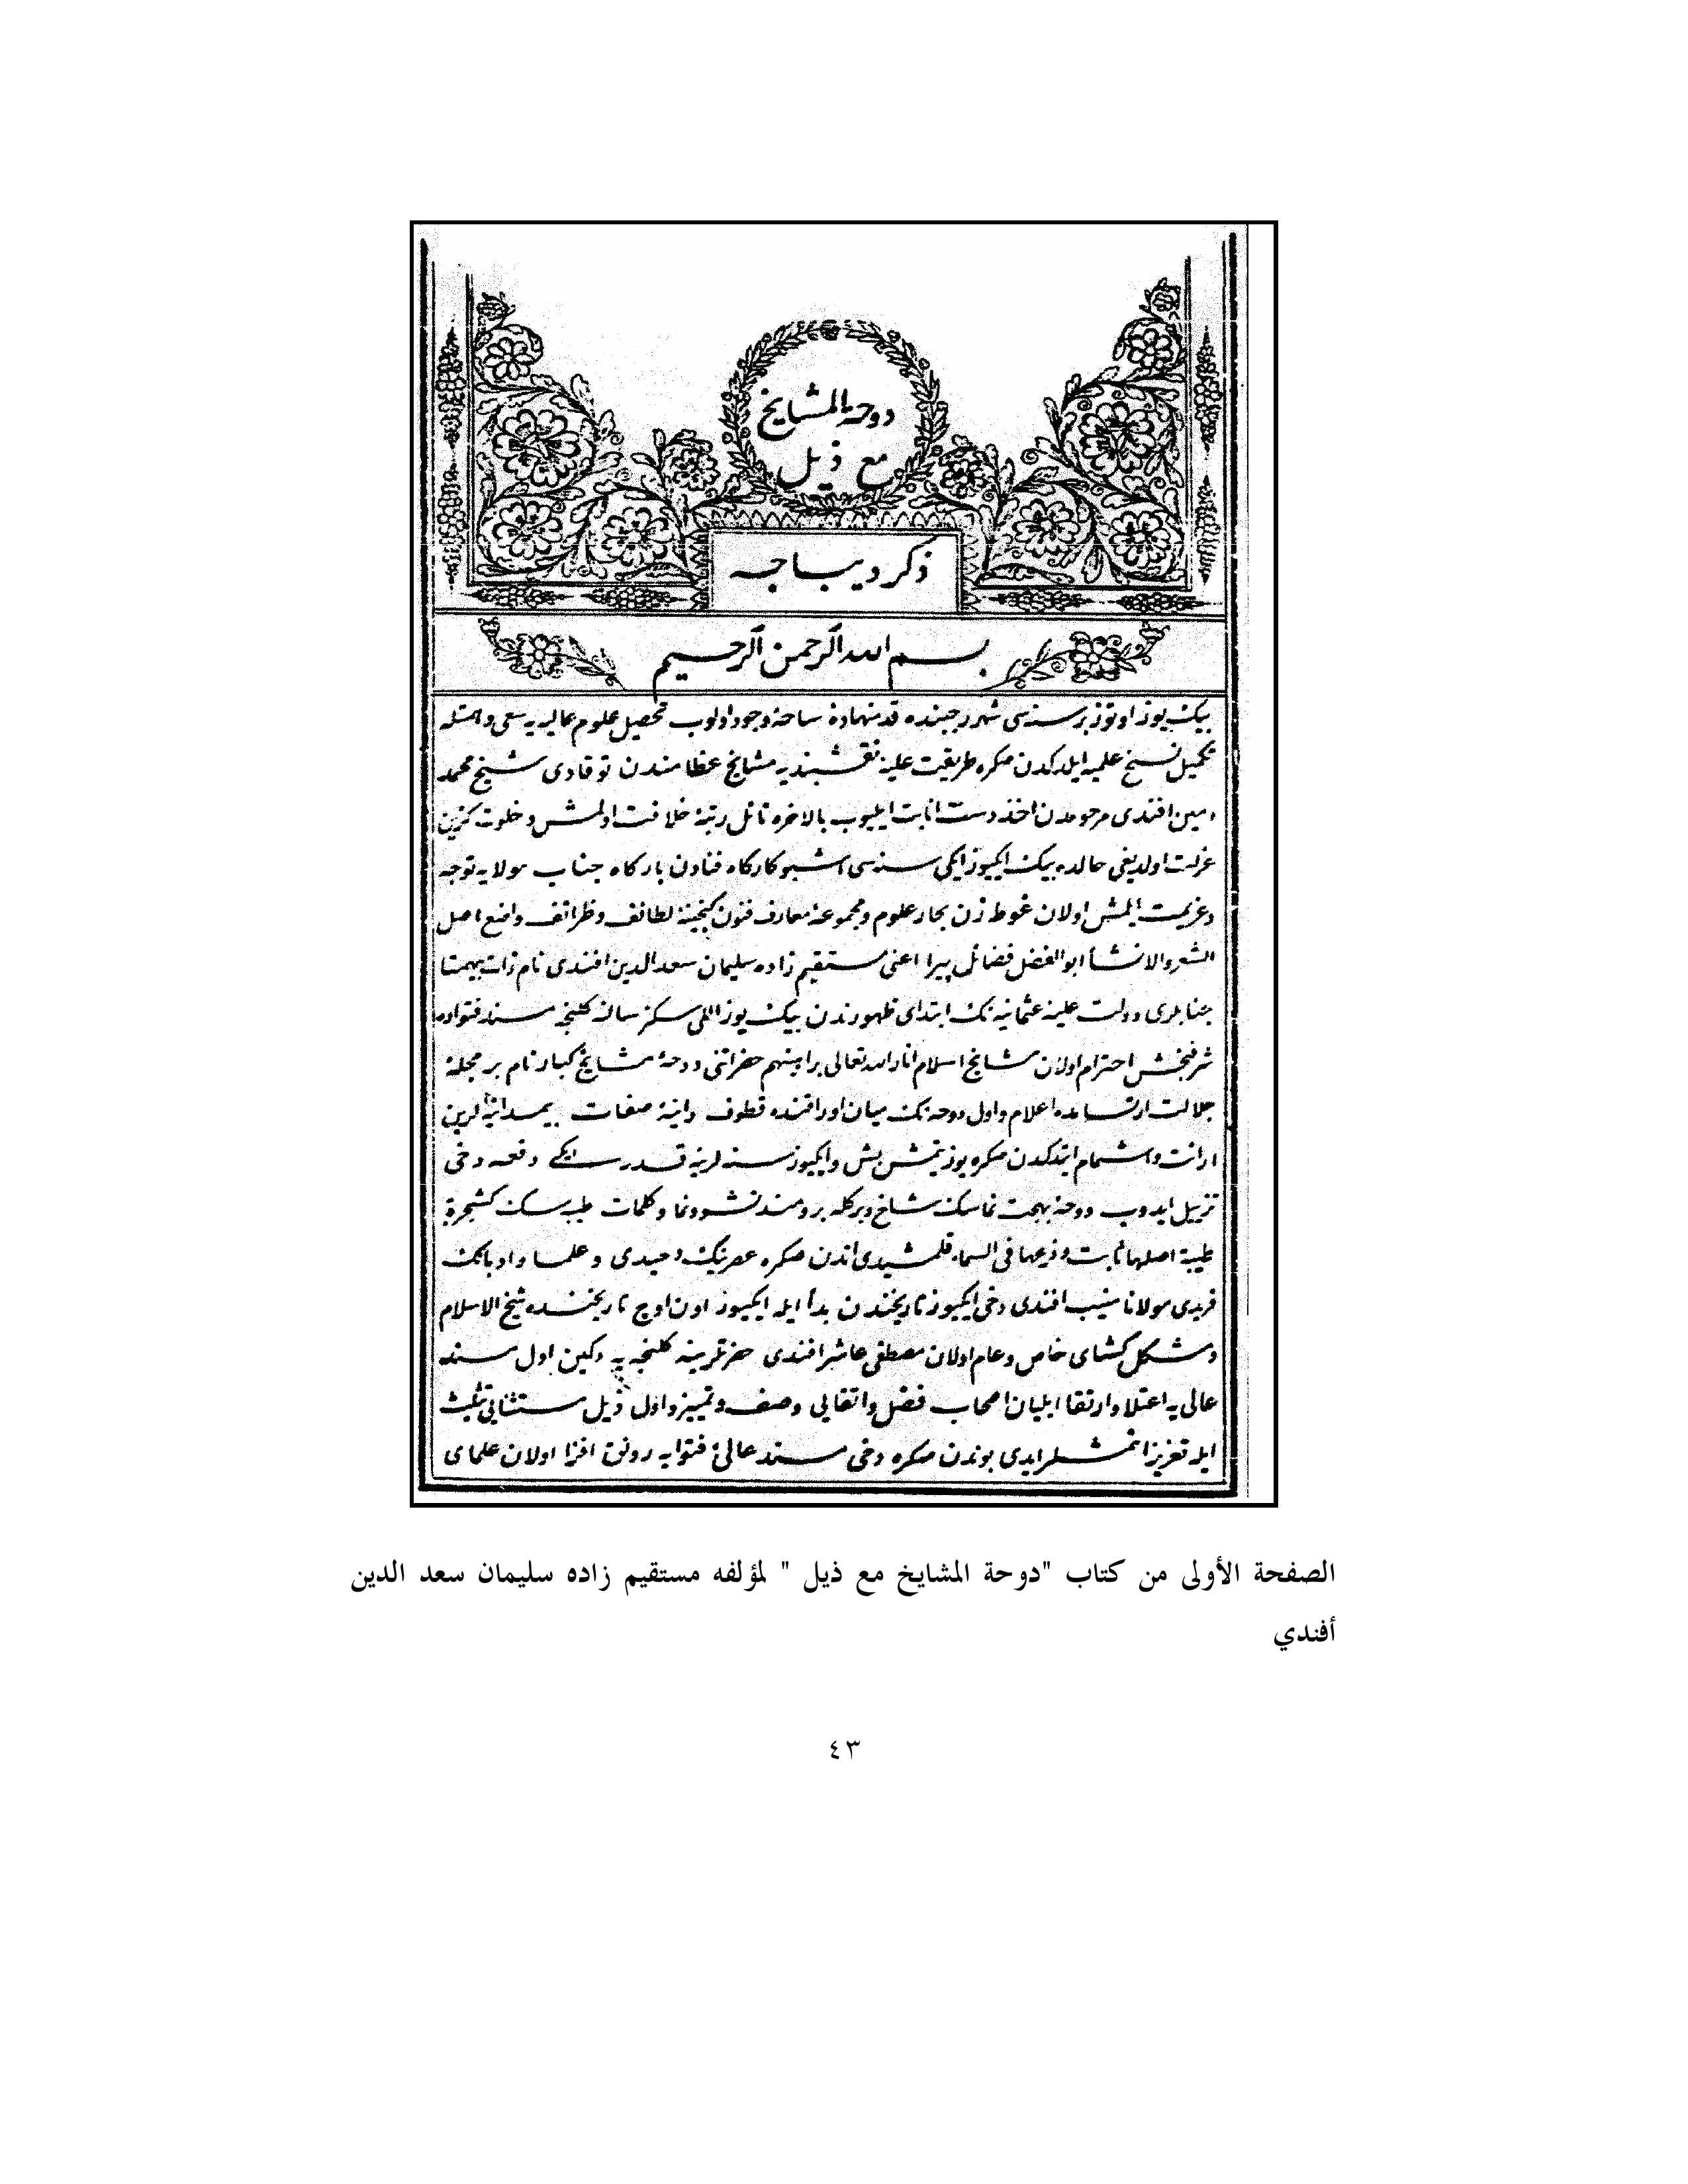 دوحة المشايخ
مع ذيل
ذكر ديباجه
بسم الله الرحمن الرحيم
بيك يوز اوتوز بر سنه‌سى شهر رجبنده قدمنهادۀ ساحۀ وجود اولوب تحصيل علوم عاليه يه سعى و همتله
تكميل نسخ علميه ايلدكدن صكره طريقت عليۀ نقشبنديه مشايخ عظامندن توقادى شيخ محمد
امين افندى مرحومدن اخذ دست انابت ايليوب بالاخره نائل رتبۀ خلافت اولمش و خلوت كزين
عزلت اولديغى حالده بيك ايكيوز ايكى سنه‌سى اشبو كاركاه فنادن باركاه جناب مولايه توجه
وعزيمت ايلمش اولان غوطه زن بحار علوم و مجموعۀ معارف فنون كنجينۀ لطائف وظرائف واضع اصل
الشعر والانشا ابوالفضل فضائل پيرا اعنى مستقيم زاده سليمان سعدالدين افندى نام ذات بيهمتا
جنابلرى دولت عليۀ عثمانيه نك ابتداى ظهورندن بيك يوز اللى سكز سالنه كلنجه مسند فتواده
شرفبخش احترام اولان مشايخ اسلام انارالله تعالى براهينهم حضراتنى دوحۀ مشايخ كبار نام بر مجلۀ
جلالت ارتسامده اعلام واول دوحه نك ميان اوراقنده قطوف دانيۀ صفات بيمدانيلرين
ارائت واشمام ايتدكدن صكره يوز يتمش بش وايكيوز سنه لرينه قدر ايكى دفعه دخى
تذييل ايدوب دوحۀ بهجت نماسك شاخ وبركله برومند نشو ونما وكلمات طيبه سك كشجرة
طيبة اصلها ثابت وفرعها فى السماء قلمشيدى اندن صكره عصرينك وحيدى و علما وادبانك
فريدى مولانا منيب افندى دخى ايكيوز تاريخندن بدأ ايله ايكيوز اون اوچ تاريخنده شيخ الاسلام
ومشكل كشاى خاص وعام اولان مصطفى عاشر افندى حضرتلرينه كلنجه يه دكين اول مسند
عالى يه اعتلا وارتقا ايليان اصحاب فضل واتقايى وصف وتمييز واول ذيل مستثنايى تثليث
ايله تعزيز اتمشلر ايدى بوندن صكره دخى مسند عالئ فتوايه رونق افزا اولان علماى
الصفحة الأولى من كتاب "دوحة المشايخ مع ذيل " لمؤلفه مستقيم زاده سليمان سعد الدين
أفندي
٤٣